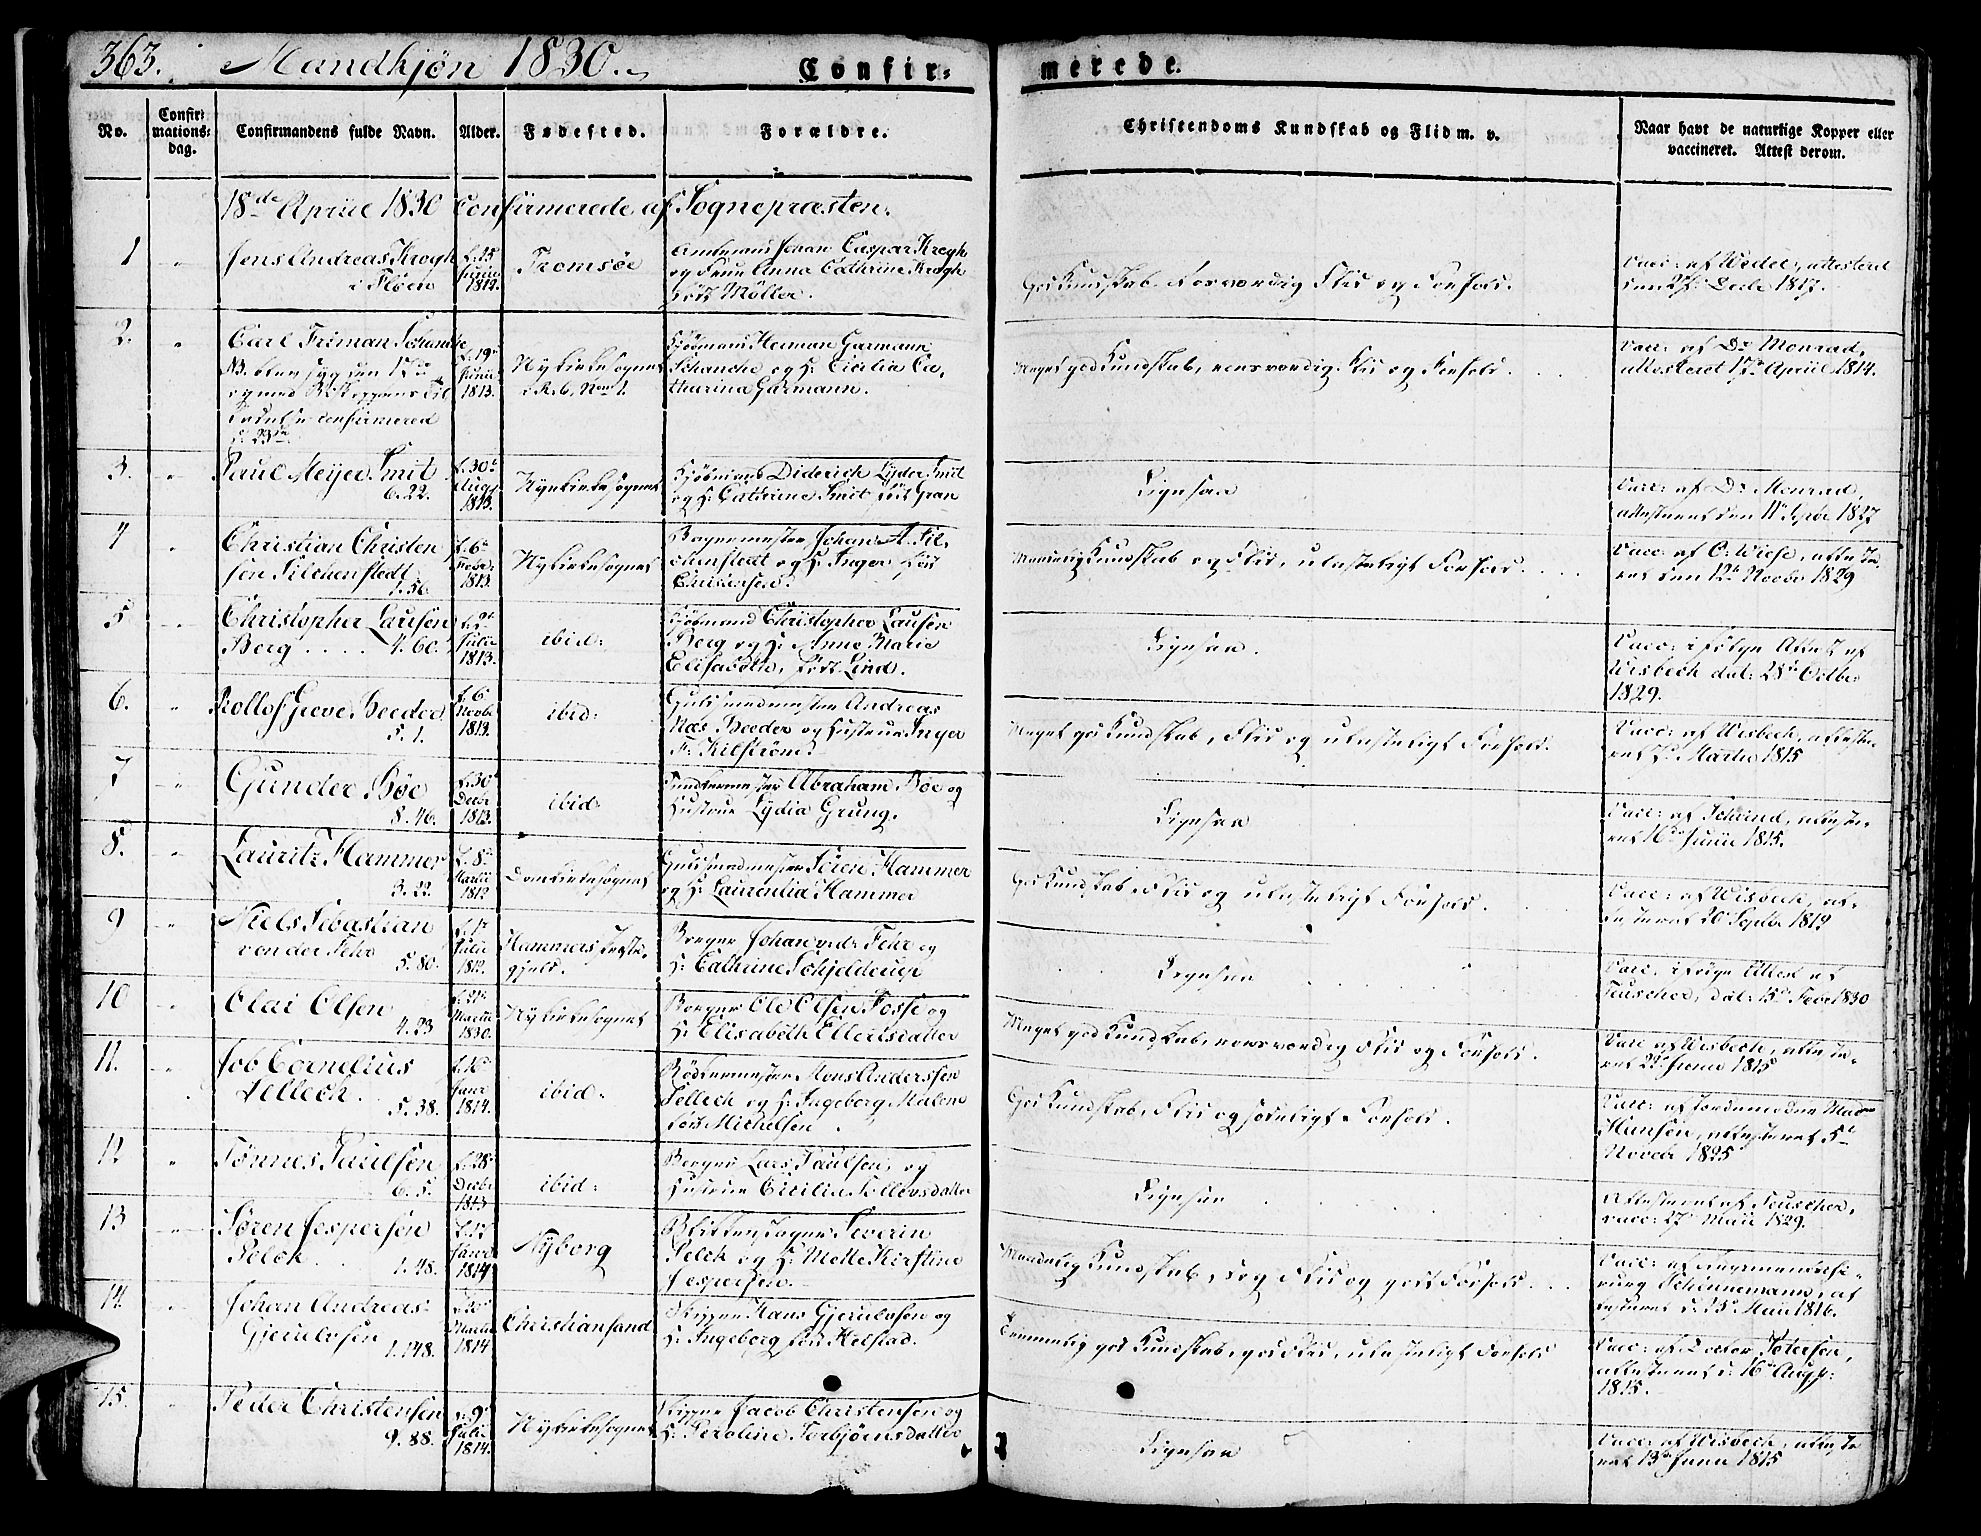 363. Mandkjøn 1830.
Confir=
merede.
No.
Confir=
mations=
dag.
Confirmandens fulde Navn.
Alder.
Fødested.
Forældre.
Christendoms Kundskab og Flid m. v.
Naar havt de naturlige Kopper eller
vaccineret. Attest derom.
18de April 1830 Confirmerede af Sognepræsten.
1
Jens Andreas Krogh
i Fløen
f. 25
Junii
1812.
Tromsøe
Amtmand Johan Caspar Krogh
og Frue Anna Cathrine Krogh
født Møller.
God Kundskab, Roesværdig Flid og Forhold.
Vacc: af Wedel, attesteret
den 27 Decbr 1817.
2.
Carl Friman Schanche
f. 19
Junii
1813.
Nykirkesognet
Kjøbmand Herman Garmann
Schanche og H: Cicilia Ca,
tharina Garmann.
Meget god Kundskab, roesværdig Flid og Forhold.
Vacc: af Dr Monrad,
attesteret 17de April 1814.
3.
Paul Meyer Smit
6. 22.
f. 30
Aug
1813.
Nykirkesognet
Kjøbmand Diderich Lyder Smit
og H: Cathrine Smit født Gran
Ligesaa
Vacc: af Dr Monrad,
attesteret den 11 Septbr 1827
4
Christian Christen
sen Filchenstedt
1. 56.
f. 6
1813.
Nykirkesognet
Bagermester Johan A. Fil,
chenstedt og H: Inger født
Christensen
Maadelig Kundskab og Flid, ulasteligt Forhold.
Vacc: af C. Wiese, atteste
ret den 12te Novbr 1829
5
Christopher Lausen
Berg . . . . 4. 60.
f. 9
Julii
1813.
ibid:
Kjøbmand Christopher Lausen
Berg og H: Anne Marie
Elisabeth, født Lind.
Ligesaa.
Vacc: ifølge Attest af
Wisbech dat: 28de Octbr
1829.
6.
Rollof Greve Beeder
5. 1.
f. 6
Novbr
1813.
ibid:
Guldsmedmester Andreas
Næs Beeder og Hustrue Inger
F. Kilstrøm
Meget god Kundskab, Flid og ulasteligt Forhold.
Vacc: af Wisbech, atteste
ret 7 Martii 1815
7
Gunder Bøe
8. 46.
f. 30
Decbr
1813.
ibid:
Abraham Bøe og
Hustrue Lydia Grung.
Ligesaa
Vacc: af Schrind, atteste,
ret 16 Junii 1815.
8.
Lauritz Hammer
3. 22.
f. 8
Martii
1812
Domkirkesognet
Guldsmedmester Søren Hammer
og H: Laurentia Hammer
God Kundskab, Flid og ulasteligt Forhold.
Vacc: af Wisbech, at,
testeret 20 Septbr 1812
9
Niels Sebastian
von der Fehr
5. 80.
f. 1
Julii
1812.
Hammers Præste,
gjeld.
Borger Johan v. d: Fehr og
H: Cathrine Schjelderup
Ligesaa
Vacc: ifølge Attest af
Teuscher, dat: 15 Febr 1830
10
Olai Olsen
4. 23
f. 21
Martii
1830.
Nykirkesognet
Borger Ole Olsen Fosse og
H: Elisabeth Ellertsdatter
Meget god Kundskab, roesværdig Flid og Forhold.
Vacc af Wisbech, atteste,
ret 22 Junii 1815
11.
Job Cornelius
Selleck.
5. 38.
f. 10
Janr
1814.
ibid:
Bødkermester Mons Anderssen
Selleck og H: Ingeborg Malene
født Michelsen
God Kundskab, Flid og sædeligt Forhold.
Vacc: af Jordemoder Mad
Hansen, attesteret 5te
Novebr 1825
12
Tønnes Paulsen
6. 5.
f. 28
Decbr
1813
ibid:
Borger Lars Paulsen, og
Hustrue Cicilia Tollevsdatter
Ligesaa
Attesteret af Teuscher,
vacc: 27 Maii 1829.
13
Søren Jespersen
Selck
1. 48.
f. 17
Janr
1814
Nyborg
Severin
Selck og H: Mette Kirstine
Jespersen.
Maadelig Kundskab, dog Flid og godt Forhold.
Vacc: af Regimentschi,
rurg Schünemann, at
testeret d: 15 Maii 1816.
14.
Johan Andreas
Gjerulvsen
1. 148.
f. 20
Martii
1814
Christiansand
Skipper Hans Gjerulvsen og
H: Ingeborg født Helstad.
Temmelig god Kundskab, god Flid, ulasteligt Forhold
Vacc: af Doctor Petersen,
attesteret d: 16 Aug:
1815.
15.
Peder Christensen
9. 88.
f. 9
Julii
1814.
Nykirkesognet
Skipper Jacob Christensen og
H: Peroline Torbjørnsdatter
Ligesaa
Vacc: af Wisbech, atteste
ret 13de Junii 1815